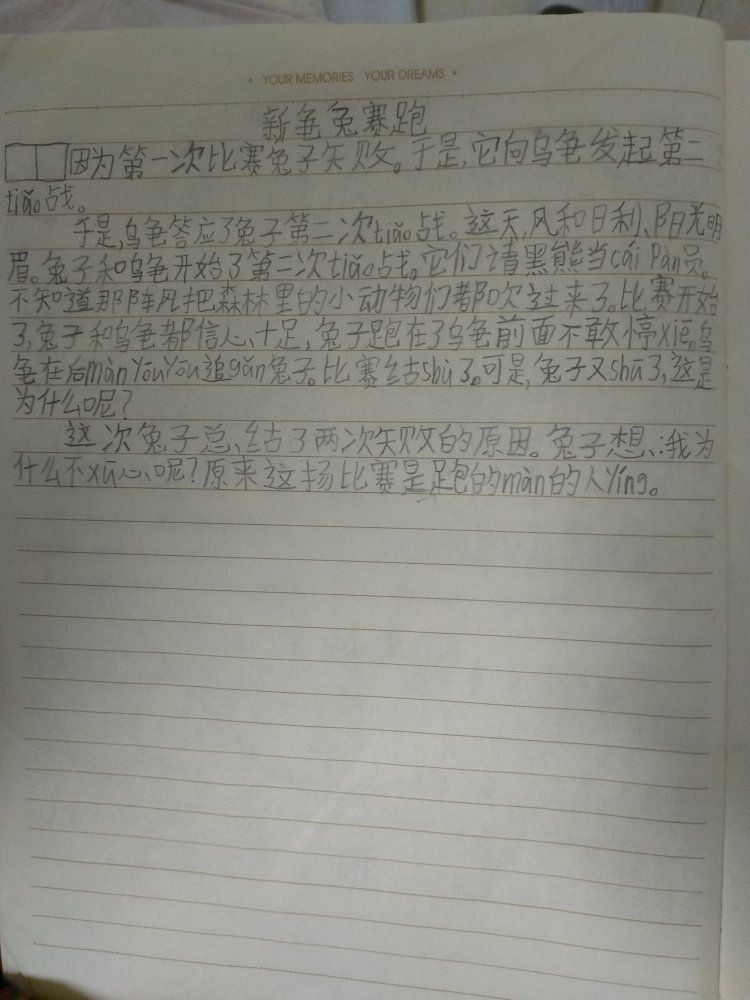 • YOUR MEMORIES YOUR DREAMS •
新龟兔赛跑
因为第一次比赛兔子失败。于是,它向乌龟发起第二
tiǎo战。
于是,乌龟答应了兔子第二次tiǎo战。这天,风和日利、阳光明
眉。兔子和乌龟开始了第二次tiǎo战。它们请黑熊当cái Pàn员。
不知道那阵风把森林里的小动物们都吹过来了。比赛开始
了,兔子和乌龟都信心十足,兔子跑在了乌龟前面不敢停xiē。乌
龟在后màn Yōu Yōu追gǎn兔子。比赛结shù了。可是,兔子又shū了,这是
为什么呢?
这次兔子总结了两次失败的原因。兔子想:我为
什么不xū心呢?原来这场比赛是跑的màn的人Yíng。